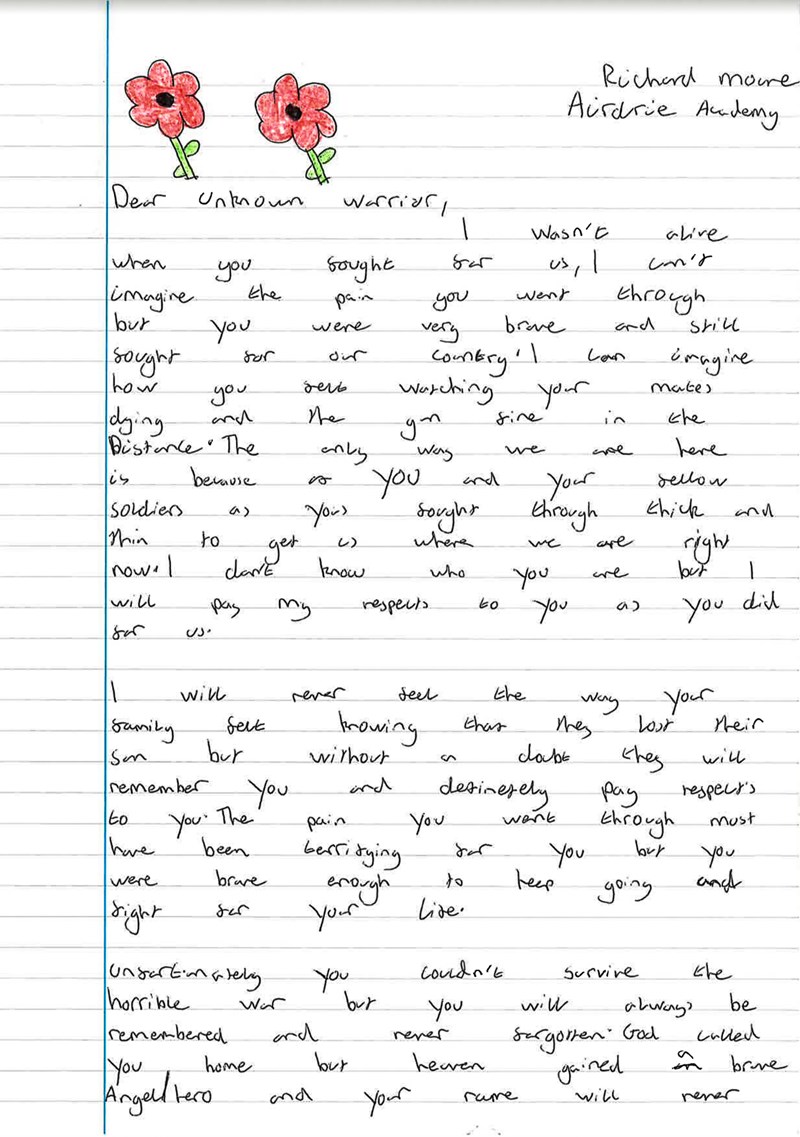 Richard Moore
Airdrie Academy
Dear Unknown Warrior,
I wasn't alive
when you fought for us, I can't
imagine the pain you went through
but you were very brave and still
fought for our country. I can imagine
how you felt watching your mates
dying and the gun fire in the
Distance. The only way we are here
is because of YOU and your fellow
soldiers as you fought through thick and
thin to get us where we are right
now. I don't know who you are but I
will pay my respects to you as you did
for us.
I will never feel the way your
family felt knowing that they lost their
son but without a doubt they will
remember you and definetely pay respects
to you. The pain you went through must
have been terrifying for you but you
were brave enough to keep going and
fight for your life.
Unfortunately you couldn't survive the
horrible war but you will always be
remembered and never forgotten. God called
you home but heaven gained a brave
Angel/Hero and your name will never